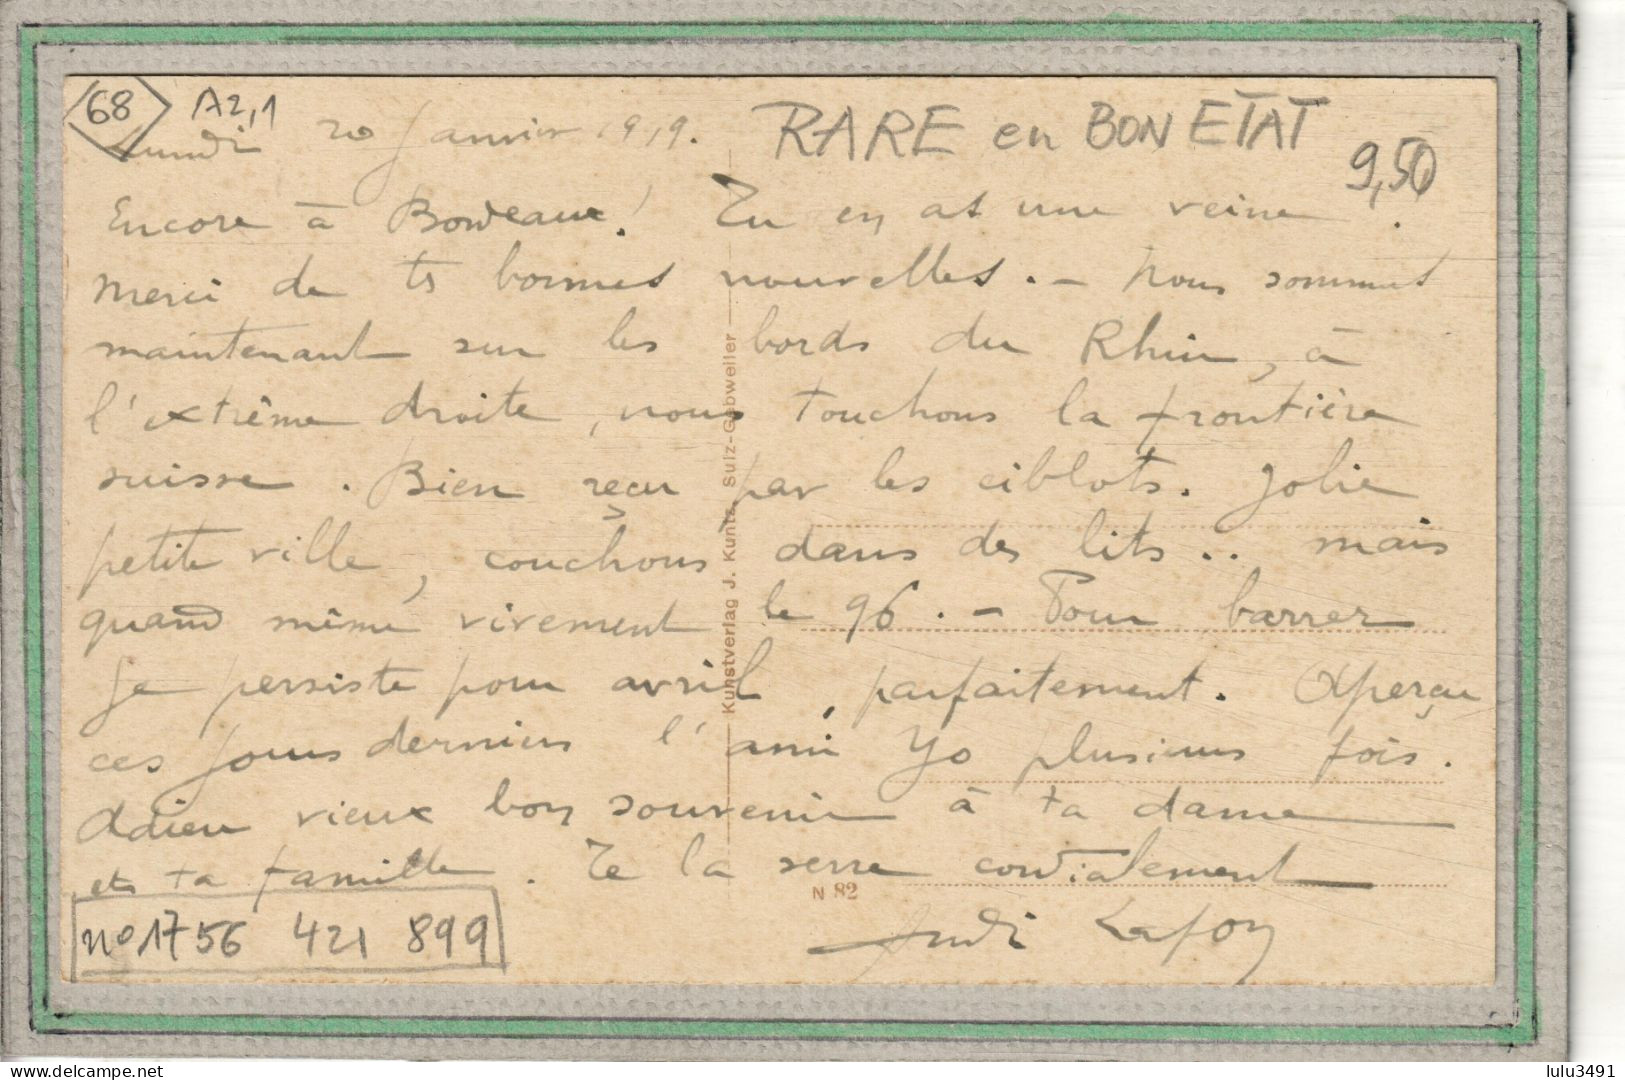 68 A2,1
Lundi 20 Janvier 1919. RARE en BON ETAT
9,50
Encore à Bordeaux! Tu en as une veine!
Merci de ts bonnes nouvelles. - Nous sommes
maintenant sur les bords du Rhin, à
l'extrême droite, nous touchons la frontière
suisse. Bien reçu par les ciblots. Jolie
petite ville, couchons dans des lits.. mais
quand même vivement le 96. - Pour barrer
je persiste pour avril, parfaitement. Aperçu
ces jours derniers l'ami Yo plusieurs fois.
Adieu vieux bon souvenir à ta dame
et ta famille. Te la serre cordialement
Lafon
no 1756 421 899
Kunstverlag J. Kuntz, Sulz-Gebweiler
N 82
delcampe.net
lulu3491